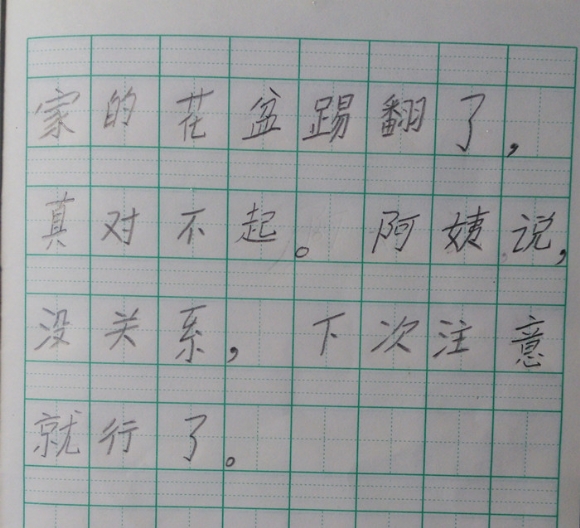 家的花盆踢翻了，
真对不起。阿姨说，
没关系，下次注意
就行了。